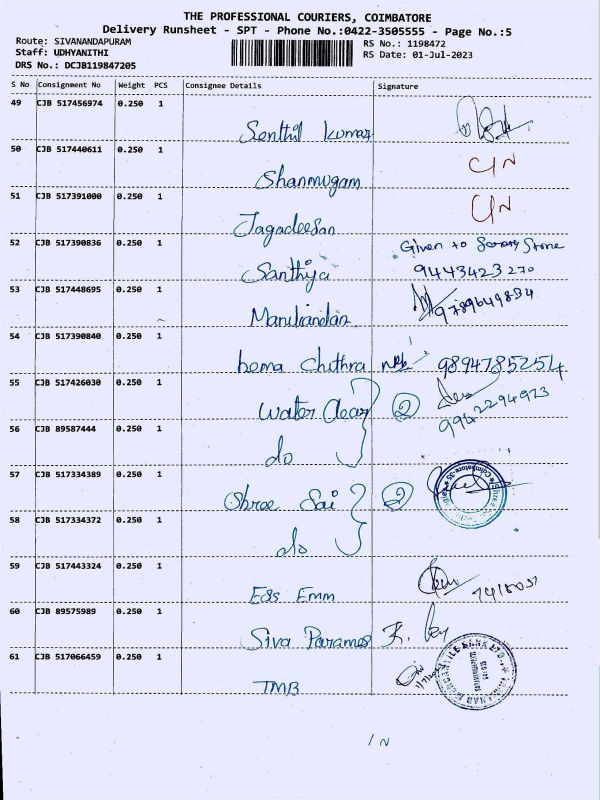 THE PROFESSIONAL COURIERS, COIMBATORE
Delivery Runsheet - SPT - Phone No.:0422-3505555 - Page No.:5
Route: SIVANANDAPURAM RS No.: 1198472
Staff: UDHYANITHI RS Date: 01-Jul-2023
DRS No.: DCJB119847205
S No Consignment No Weight PCS Consignee Details Signature
49 CJB 517456974 0.250 1
Senthil kumar
50 CJB 517440611 0.250 1
Shanmugam
51 CJB 517391000 0.250 1
Jagadeesan
52 CJB 517390836 0.250 1 Given to Stone
Santhiya 9443423270
53 CJB 517448695 0.250 1
Manikandan 9789649834
54 CJB 517390840 0.250 1
hema chithra 9894785254
55 CJB 517426030 0.250 1
Water Clear 2 9942294923
56 CJB 89587444 0.250 1
do
57 CJB 517334389 0.250 1
Shree Sai 2
58 CJB 517334372 0.250 1
do
59 CJB 517443324 0.250 1
Ess Emm
60 CJB 89575989 0.250 1
Siva Parames
61 CJB 517066459 0.250 1
TMB